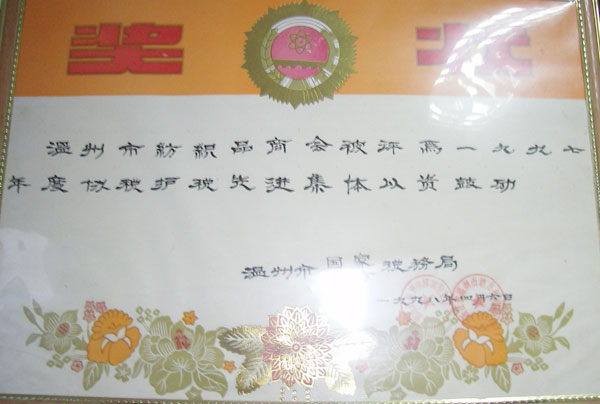 奖 状
温州市纺织品商会被评为一九九七
年度协税护税先进集体以资鼓励
温州市国家税务局
一九九八年四月六日